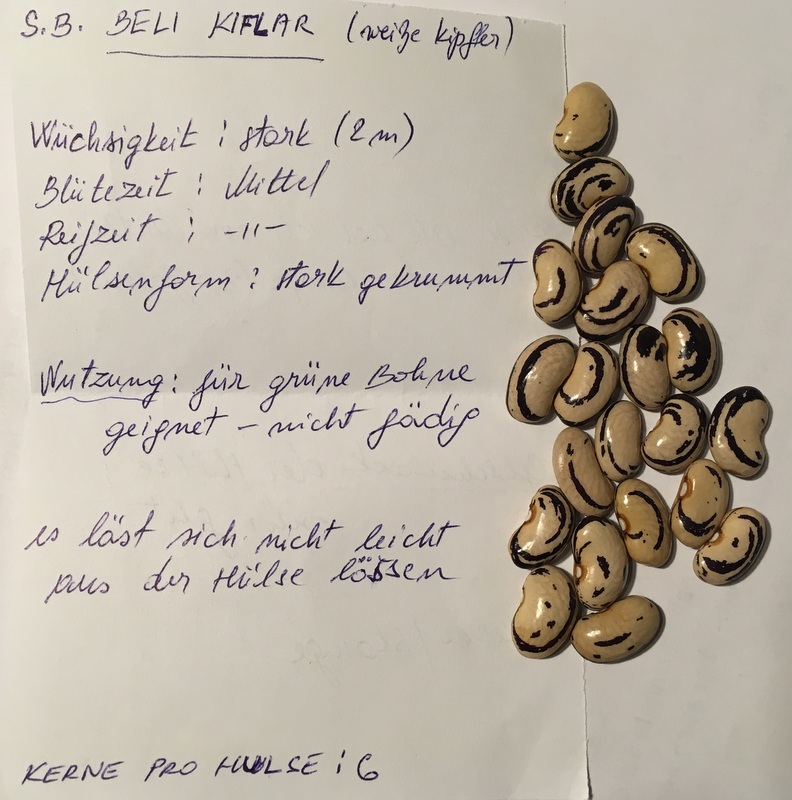 S.B. BELI KIFLAR (weiße kipfler)
Wüchsigkeit : stark (2m)
Blütezeit : Mittel
Reifzeit : -11-
Hülsenform : stark gekrummt
Nutzung : für grüne Bohne
geignet – nicht fädig
es läst sich nicht leicht
aus der Hülse lössen
KERNE PRO HULSE : 6